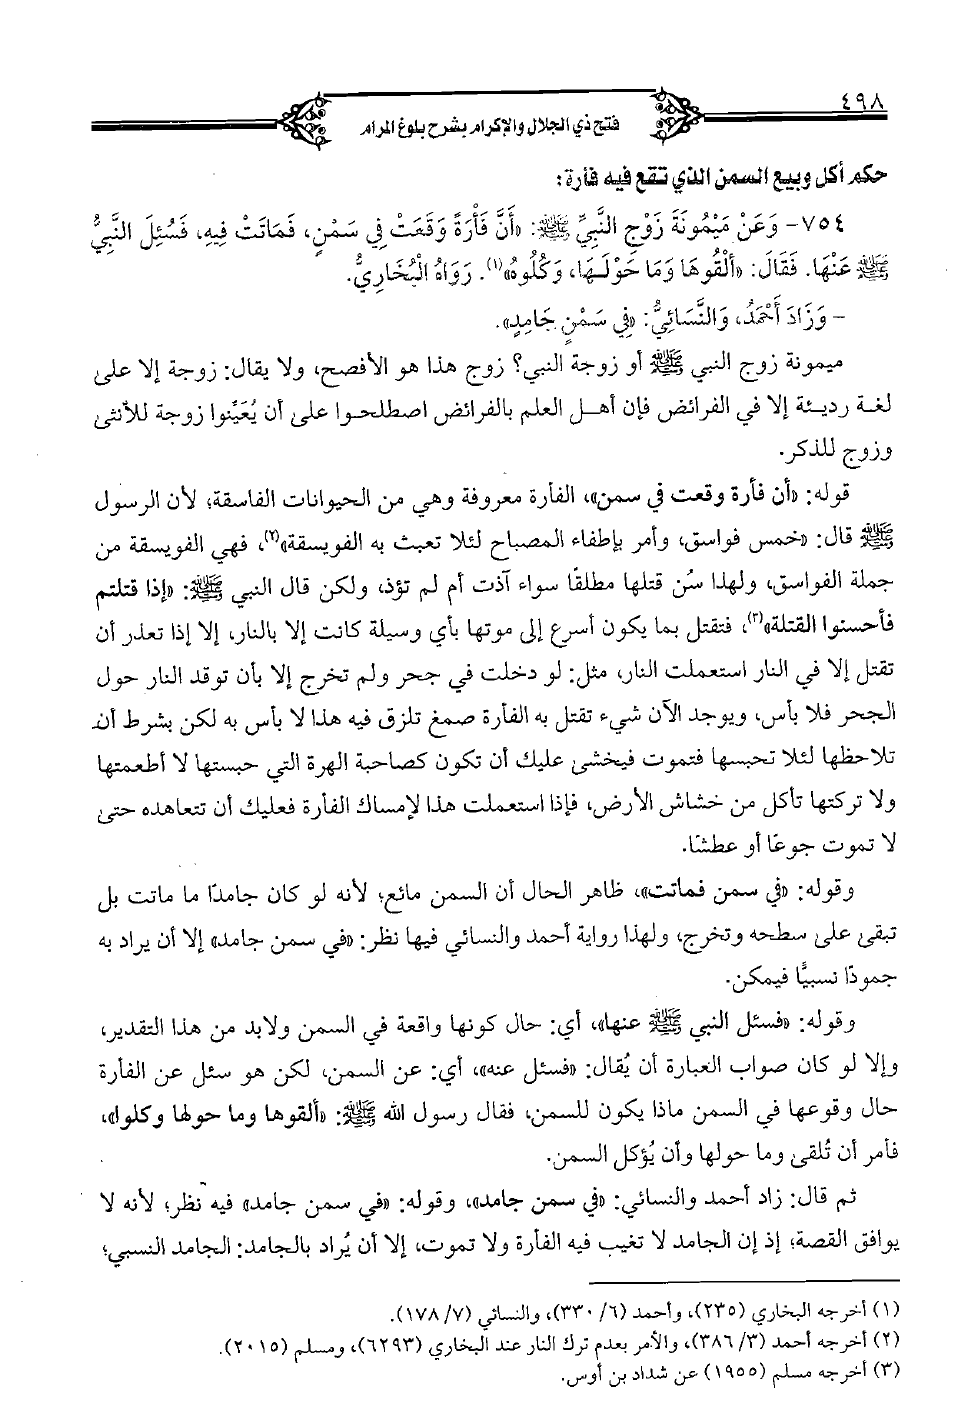 ٤٩٨
فتح ذي الجلال والإكرام بشرح بلوغ المرام
حكم أكل وبيع السمن الذي تقع فيه فأرة:
٧٥٤- وَعَنْ مَيْمُونَةَ زَوْجِ النَّبِيِّ ﷺ: «أَنَّ فَأْرَةً وَقَعَتْ فِي سَمْنٍ، فَمَاتَتْ فِيهِ، فَسُئِلَ النَّبِيُّ
ﷺ عَنْهَا. فَقَالَ: «أَلْقُوهَا وَمَا حَوْلَهَا، وَكُلُوهُ»(١). رَوَاهُ الْبُخَارِيُّ.
- وَزَادَ أَحْمَدُ، وَالنَّسَائِيُّ: «فِي سَمْنٍ جَامِدٍ».
ميمونة زوج النبي ﷺ أو زوجة النبي؟ زوج هذا هو الأفصح، ولا يقال: زوجة إلا على
لغة رديئة إلا في الفرائض فإن أهل العلم بالفرائض اصطلحوا على أن يُعَيِّنوا زوجة للأنثى
وزوج للذكر.
قوله: «أن فأرة وقعت في سمن»، الفأرة معروفة وهي من الحيوانات الفاسقة؛ لأن الرسول
ﷺ قال: «خمس فواسق، وأمر بإطفاء المصباح لئلا تعبث به الفويسقة»(٢)، فهي الفويسقة من
جملة الفواسق، ولهذا سُن قتلها مطلقًا سواء آذت أم لم تؤذ، ولكن قال النبي ﷺ: «إذا قتلتم
فأحسنوا القتلة»(٣)، فتقتل بما يكون أسرع إلى موتها بأي وسيلة كانت إلا بالنار، إلا إذا تعذر أن
تقتل إلا في النار استعملت النار، مثل: لو دخلت في جحر ولم تخرج إلا بأن توقد النار حول
الجحر فلا بأس، ويوجد الآن شيء تقتل به الفأرة صمغ تلزق فيه هذا لا بأس به لكن بشرط أن
تلاحظها لئلا تحبسها فتموت فيخشى عليك أن تكون كصاحبة الهرة التي حبستها لا أطعمتها
ولا تركتها تأكل من خشاش الأرض، فإذا استعملت هذا لإمساك الفأرة فعليك أن تتعاهده حتى
لا تموت جوعًا أو عطشًا.
وقوله: «في سمن فماتت»، ظاهر الحال أن السمن مائع؛ لأنه لو كان جامدًا ما ماتت بل
تبقى على سطحه وتخرج، ولهذا رواية أحمد والنسائي فيها نظر: «في سمن جامد» إلا أن يراد به
جمودًا نسبيًّا فيمكن.
وقوله: «فسئل النبي ﷺ عنها»، أي: حال كونها واقعة في السمن ولابد من هذا التقدير،
وإلا لو كان صواب العبارة أن يُقال: «فسئل عنه»، أي: عن السمن، لكن هو سئل عن الفأرة
حال وقوعها في السمن ماذا يكون للسمن، فقال رسول الله ﷺ: «ألقوها وما حولها وكلوا»،
فأمر أن تُلقى وما حولها وأن يُؤكل السمن.
ثم قال: زاد أحمد والنسائي: «في سمن جامد»، وقوله: «في سمن جامد» فيه نظر؛ لأنه لا
يوافق القصة؛ إذ إن الجامد لا تغيب فيه الفأرة ولا تموت، إلا أن يُراد بالجامد: الجامد النسبي؛
(١) أخرجه البخاري (٢٣٥)، وأحمد (٦/ ٣٣٠)، والنسائي (٧/ ١٧٨).
(٢) أخرجه أحمد (٣/ ٣٨٦)، والأمر بعدم ترك النار عند البخاري (٦٢٩٣)، ومسلم (٢٠١٥).
(٣) أخرجه مسلم (١٩٥٥) عن شداد بن أوس.